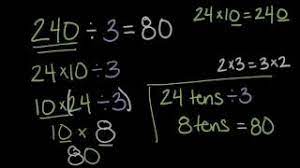 240 ÷ 3 = 80
24×10 = 240
24×10÷3
2×3 = 3×2
10×(24÷3)
10 × 8
80
24 tens ÷3
8 tens = 80